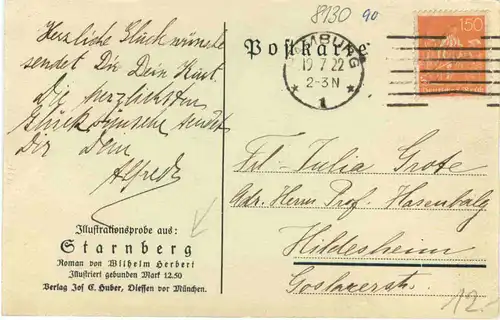 Herzliche Glückwünsche
sendet Dir Dein Kurt.
Die herzlichsten
Glückwünsche sendet
Dir Dein
Alfred
Illustrationsprobe aus:
Starnberg
Roman von Wilhelm Herbert
Illustriert gebunden Mark 12.50
Verlag Jos C. Huber, Diessen vor München.
8130 90
Postkarte
HAMBURG
19 7.22
2-3N
* 1 *
150
Frl. Julia Grote
Adr. Herrn Prof. Hasenbalg
Hildesheim
Goslarerstr.
12.-